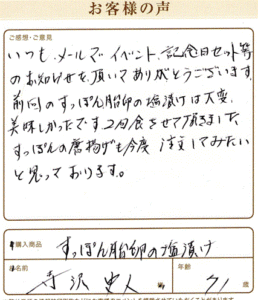 お客様の声
ご感想・ご意見
いつも、メールでイベント、記念日セット等
のお知らせを頂いてありがとうございます。
前回のすっぽん脂卵の塩漬けは大変、
美味しかったです。2回食させて頂きました
すっぽんの唐揚げも今度注文してみたい
と思っております。
購入商品
すっぽん脂卵の塩漬け
お名前
寺沢 史人 様
年齢
71 歳